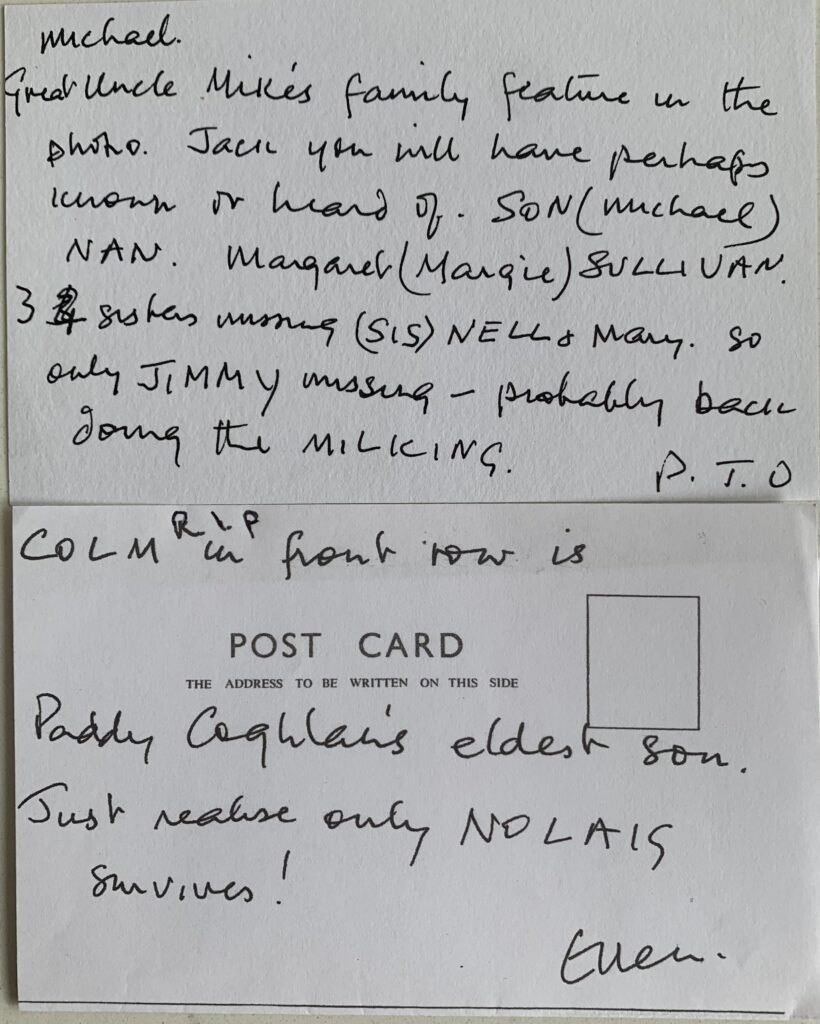 Michael.
Great Uncle Mike's family feature in the
photo. Jack you will have perhaps
known or heard of. SON (Michael)
NAN. Margaret (Margie) SULLIVAN.
3 sisters missing (SIS) NELL & Mary. so
only JIMMY missing – probably back
doing the MILKING.
P.T.O
COLM RIP in front row is
POST CARD
THE ADDRESS TO BE WRITTEN ON THIS SIDE
Paddy Coghlan's eldest son.
Just realise only NOLAIG
survives!
Ellen.